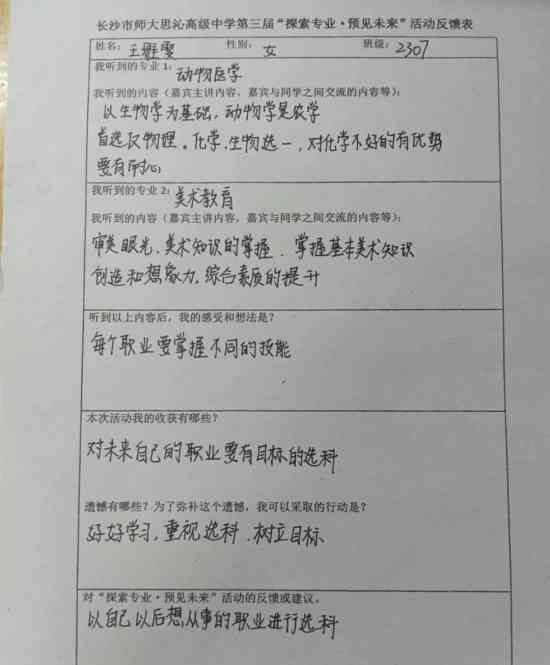 长沙市师大思沁高级中学第三届“探索专业·预见未来”活动反馈表
姓名： 王 雯 性别： 女 班级： 2307
我听到的专业1： 动物医学
我听到的内容（嘉宾主讲内容、嘉宾与同学之间交流的内容等）：
以生物学为基础，动物学是农学
首选仅物理。化学、生物选一，对化学不好的有优势
要有耐心
我听到的专业2： 美术教育
我听到的内容（嘉宾主讲内容、嘉宾与同学之间交流的内容等）：
审美眼光、美术知识的掌握、掌握基本美术知识
创造和想象力，综合素质的提升
听到以上内容后，我的感受和想法是？
每个职业要掌握不同的技能
本次活动我的收获有哪些？
对未来自己的职业要有目标的选科
遗憾有哪些？为了弥补这个遗憾，我可以采取的行动是？
好好学习，重视选科、树立目标
对“探索专业·预见未来”活动的反馈或建议。
以自己以后想从事的职业进行选科